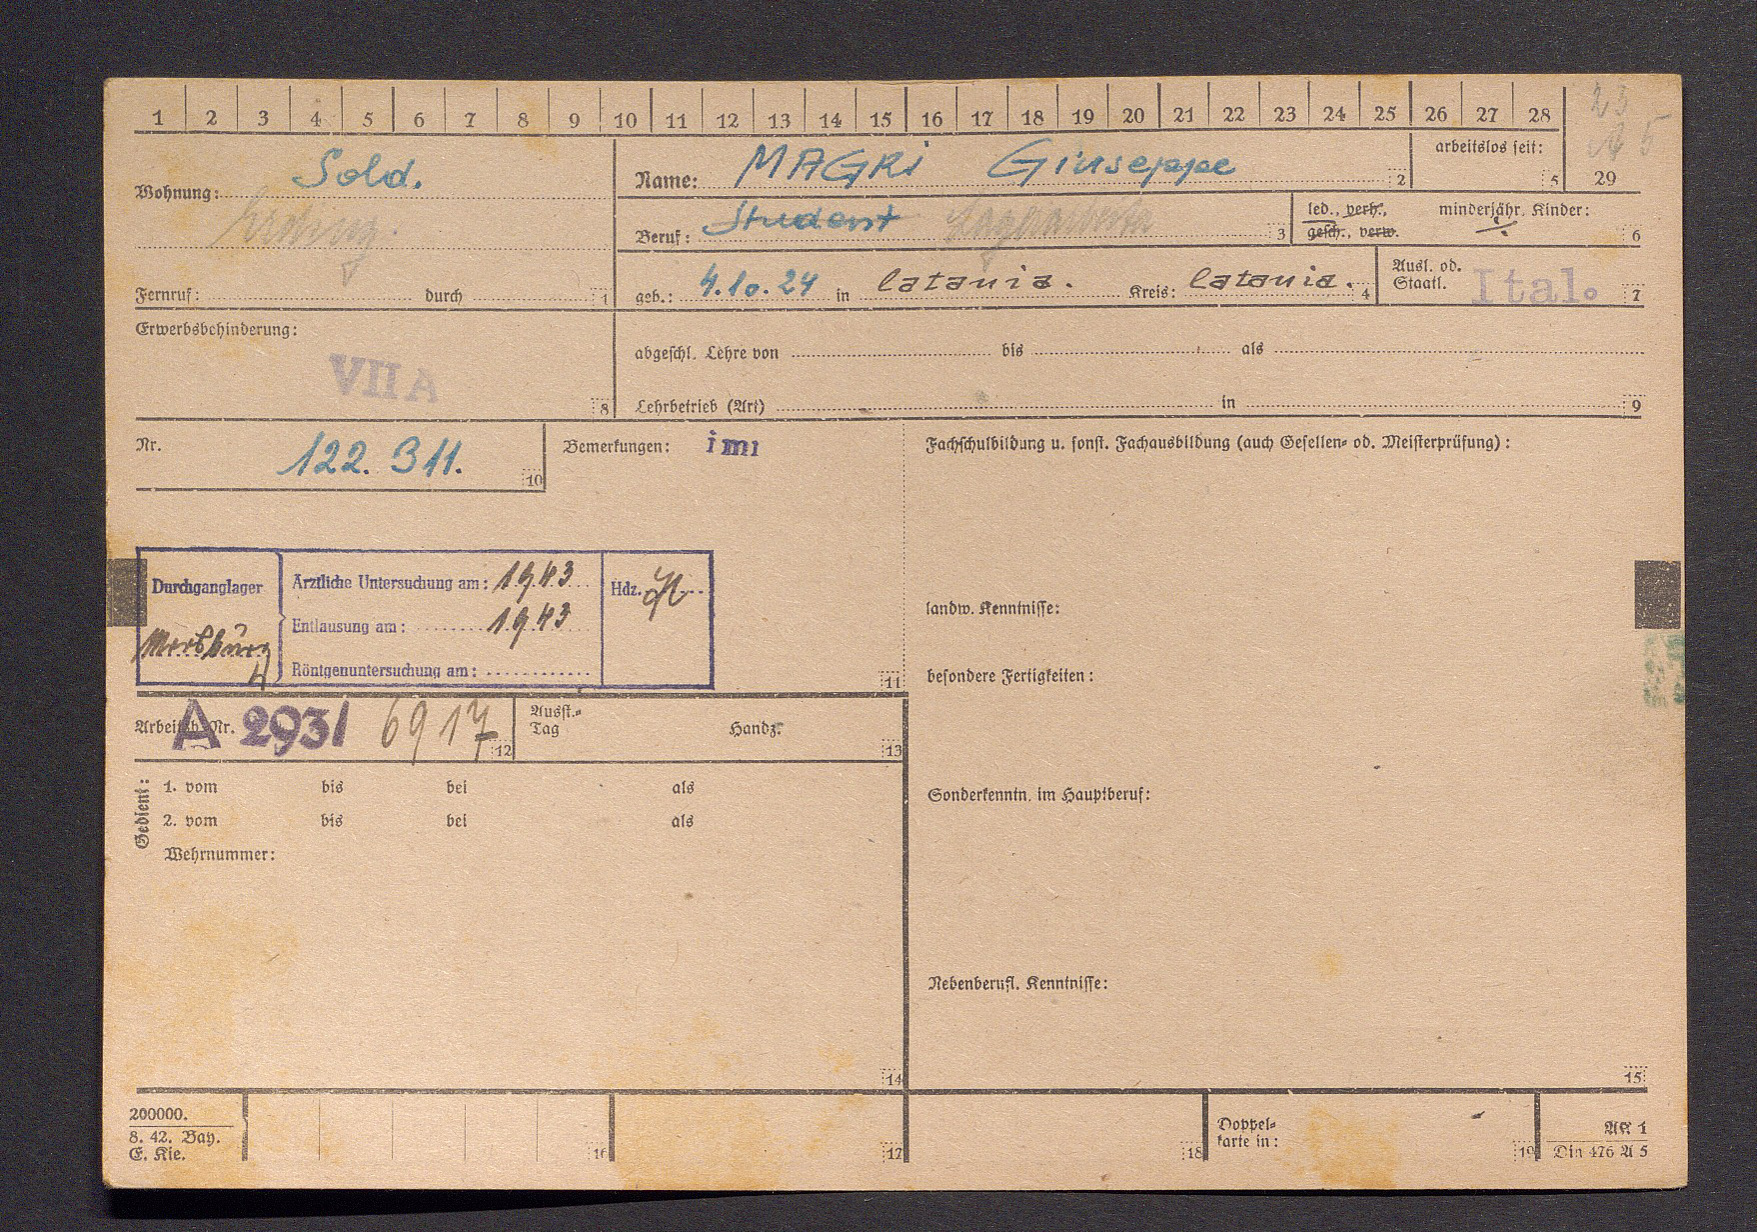 1 2 3 4 5 6 7 8 9 10 11 12 13 14 15 16 17 18 19 20 21 22 23 24 25 26 27 28 29
23
A 5
Wohnung: Sold.
Erding.
Fernruf: durch 1
Name: MAGRi Giuseppe 2
arbeitslos seit: 5
Beruf: Student 3
led., verh., minderjähr. Kinder:
gesch., verw. 6
geb.: 4.10.24 in Catania. Kreis: Catania. 4
Ausl. od.
Staatl. Ital. 7
Erwerbsbehinderung:
VII A
8
abgeschl. Lehre von bis als
Lehrbetrieb (Art) in 9
Nr. 122. 311. 10
Bemerkungen: imi
Fachschulbildung u. sonst. Fachausbildung (auch Gesellen- od. Meisterprüfung):
Durchganglager
Ärztliche Untersuchung am: 1943
Entlausung am: 1943
Röntgenuntersuchung am:
Hdz.
11
landw. Kenntnisse:
besondere Fertigkeiten:
Arbeitsb. Nr. A 2931 6917 12
Ausst.-
Tag Handz. 13
Gedient:
1. vom bis bei als
2. vom bis bei als
Wehrnummer:
14
Sonderkenntn. im Hauptberuf:
Nebenberufl. Kenntnisse:
15
200000.
8. 42. Bay.
E. Kie.
16 17 18
Doppel-
karte in: 19
AK 1
Din 476 A 5